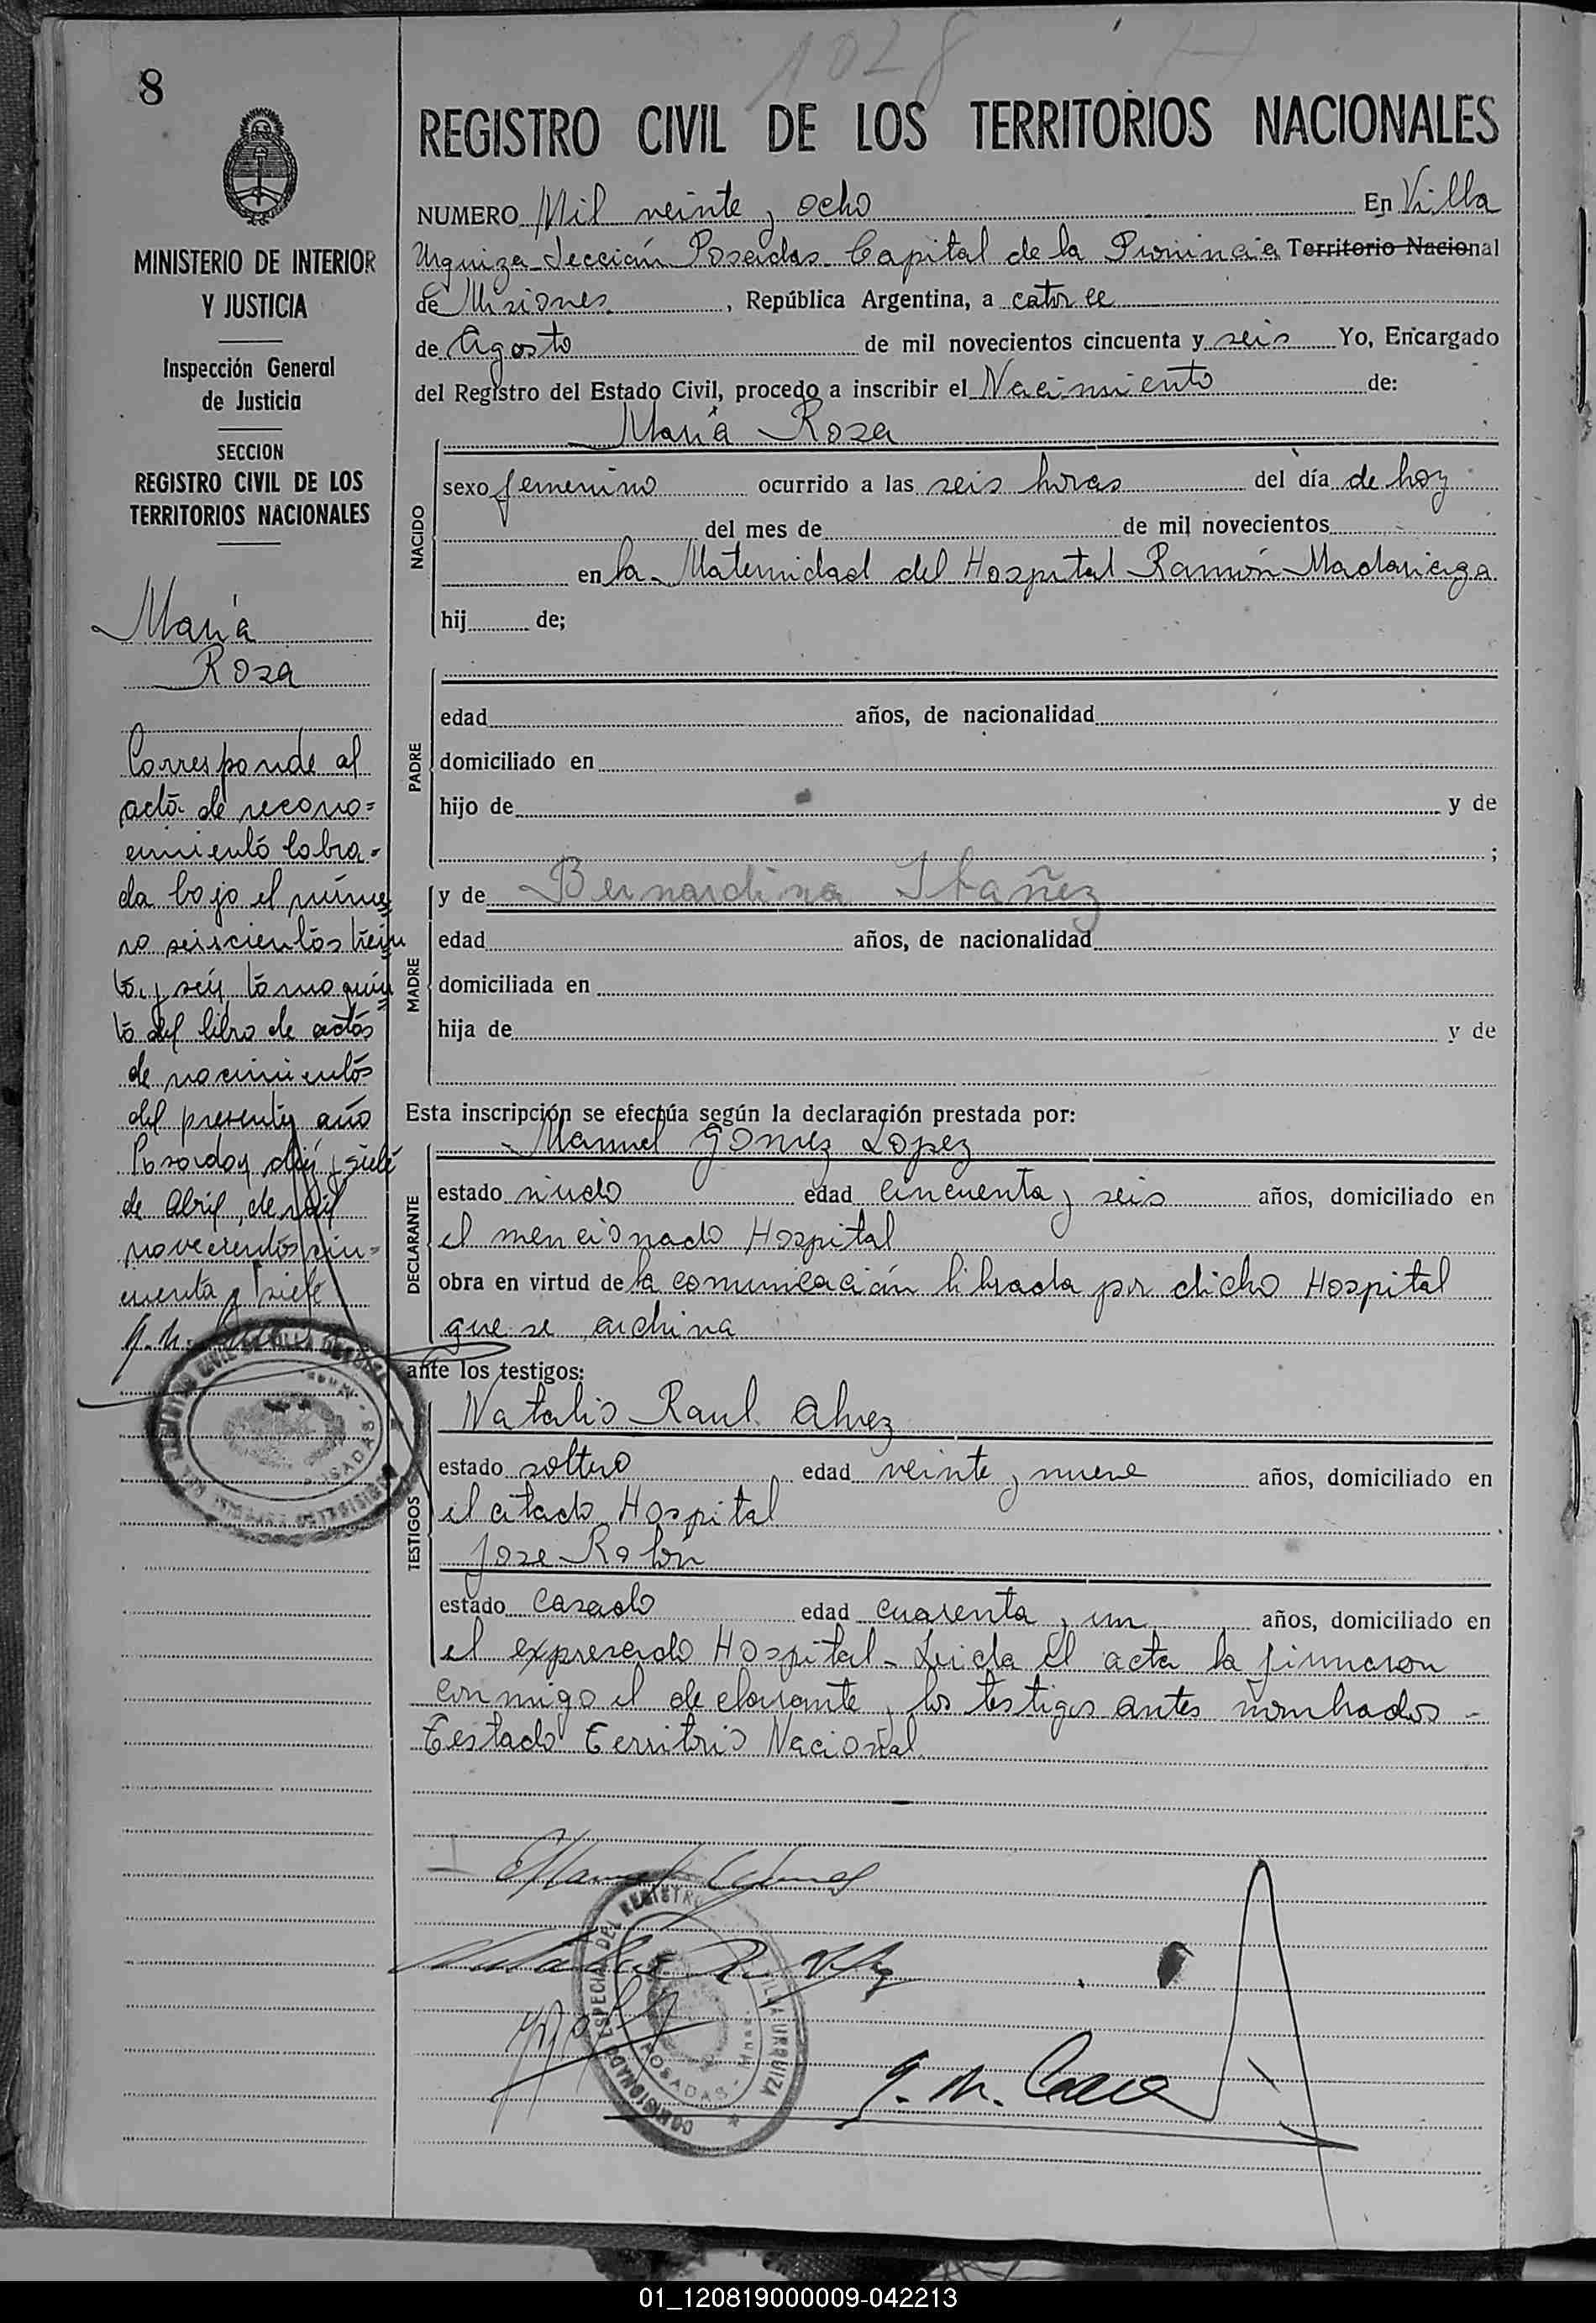 1028
8
REGISTRO CIVIL DE LOS TERRITORIOS NACIONALES
MINISTERIO DE INTERIOR
Y JUSTICIA
Inspección General
de Justicia
SECCION
REGISTRO CIVIL DE LOS
TERRITORIOS NACIONALES
María
Rosa
Corresponde al
acta de recono=
cimiento labra=
da bajo el núme=
ro seiscientos trein
ta y seis tomo quin=
to del libro de actas
de nacimientos
del presente año
Posadas, diez y siete
de Abril, de mil
novecientos cin=
cuenta y siete
NUMERO Mil veinte y ocho En Villa
Urquiza Sección Posadas Capital de la Provincia Territorio Nacional
de Misiones, República Argentina, a catorce
de Agosto de mil novecientos cincuenta y seis Yo, Encargado
del Registro del Estado Civil, procedo a inscribir el Nacimiento de:
NACIDO
María Rosa
sexo femenino ocurrido a las seis horas del día de hoy
del mes de de mil novecientos
en la Maternidad del Hospital Ramón Madariaga
hij de;
PADRE
edad años, de nacionalidad
domiciliado en
hijo de y de
;
MADRE
y de Bernardina Ibañez
edad años, de nacionalidad
domiciliada en
hija de y de
Esta inscripción se efectúa según la declaración prestada por:
DECLARANTE
Manuel Gomez Lopez
estado viudo edad cincuenta y seis años, domiciliado en
el mencionado Hospital
obra en virtud de la comunicación librada por dicho Hospital
que se archiva
ante los testigos:
TESTIGOS
Natalio Raul Alvez
estado soltero edad veinte y nueve años, domiciliado en
el citado Hospital
Jose Rolón
estado Casado edad cuarenta y un años, domiciliado en
el expresado Hospital - Leida el acta la firmaron
conmigo el declarante y los testigos antes nombrados -
Testado Territorio Nacional
COMISIONADO ESPECIAL DEL REGISTRO
VILLA URQUIZA
POSADAS - Mnes.
01_120819000009-042213